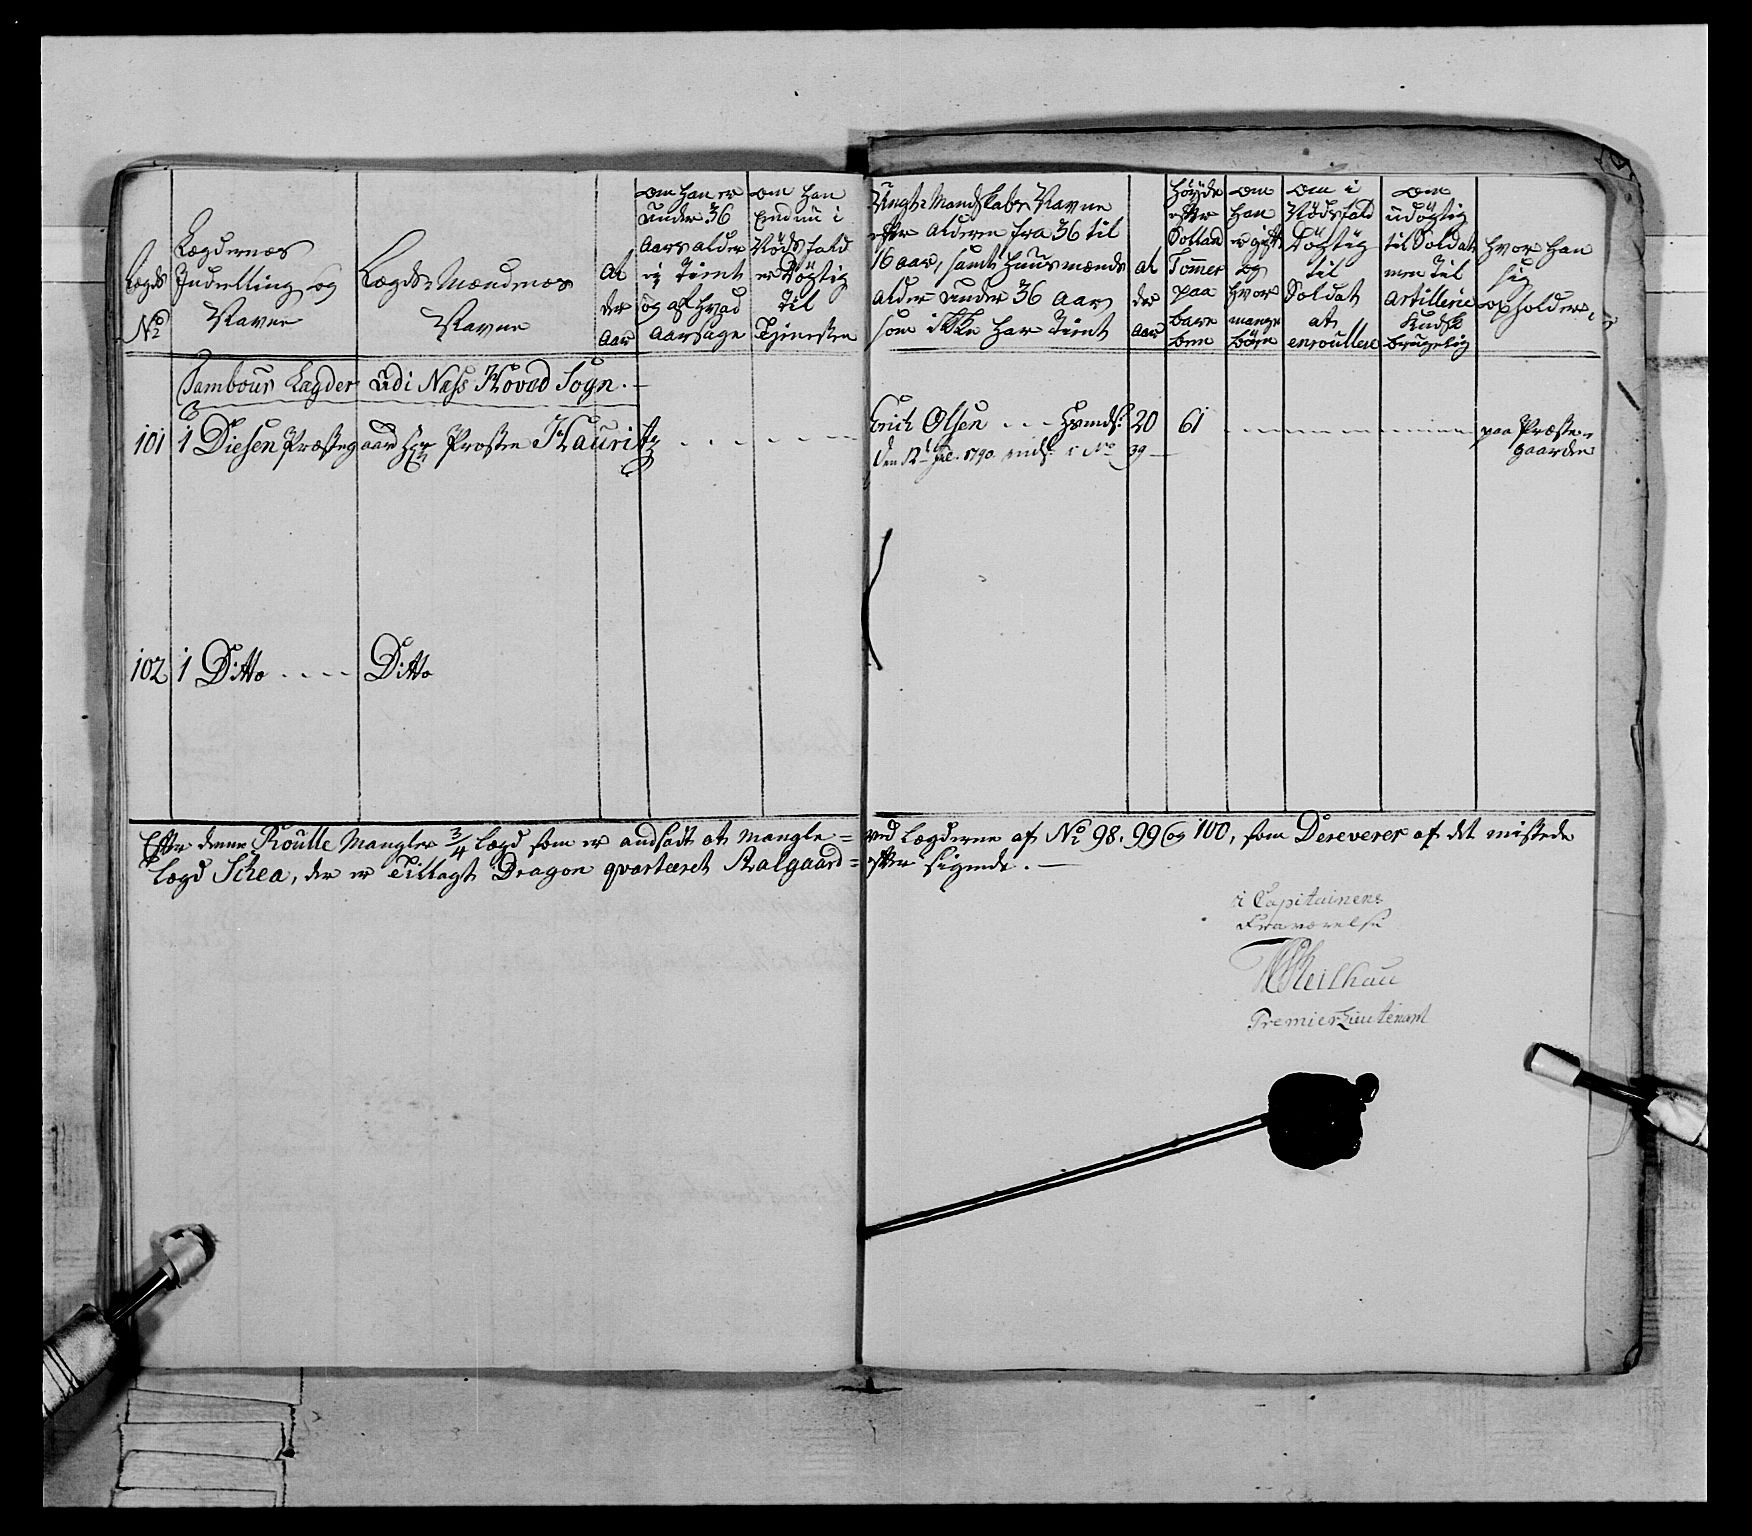 Lægds
No
Lægdernes
Inddelling og
Navne
Lægds-Mændenes
Navne
Al
der
Aar
om han er
under 36
Aars alder
og Tient
og af hvad
Aarsage
om han
Endnu i
Nødsfald
er Døgtig
til
Tienesten
Ungt-Mandskabs Navne
efter alderen fra 36 til
16 aar, samt Huusmænds
alder under 36 aar,
som ikke har Tient
al
der
aar
Høyde
efter
Solland
Tommer
paa
bare
been
om
han
er gift
og
hvor
mange
børn
om i
Nødsfald
Døgtig
til
Soldat
at
enroullere
om
udøgtig
til Soldat
men til
Artillerie
Kudsk
brugelig
hvor han
sig
opholder
Tambour Lægder udi Næss Hoved Sogn.
101 1 Diesen Præstegaard Hr Prosten Hauritz
Erich Olsen Hvmds: 20 61 paa Præste-
gaarden
den 12 1790 inds: i No 39
102 1 Ditto Ditto
Efter denne Roulle Mangler 3/4 Lægd som er andsadt at mangle ved Lægderne af No 98. 99 og 100, som Dereverer af det mistede
Lægd Schea, der er Tillagt Dragon qvarteret Aalgaard efter sigende.
i Capitainens
Fraværelse
Keilhau
Premier Lieutenant